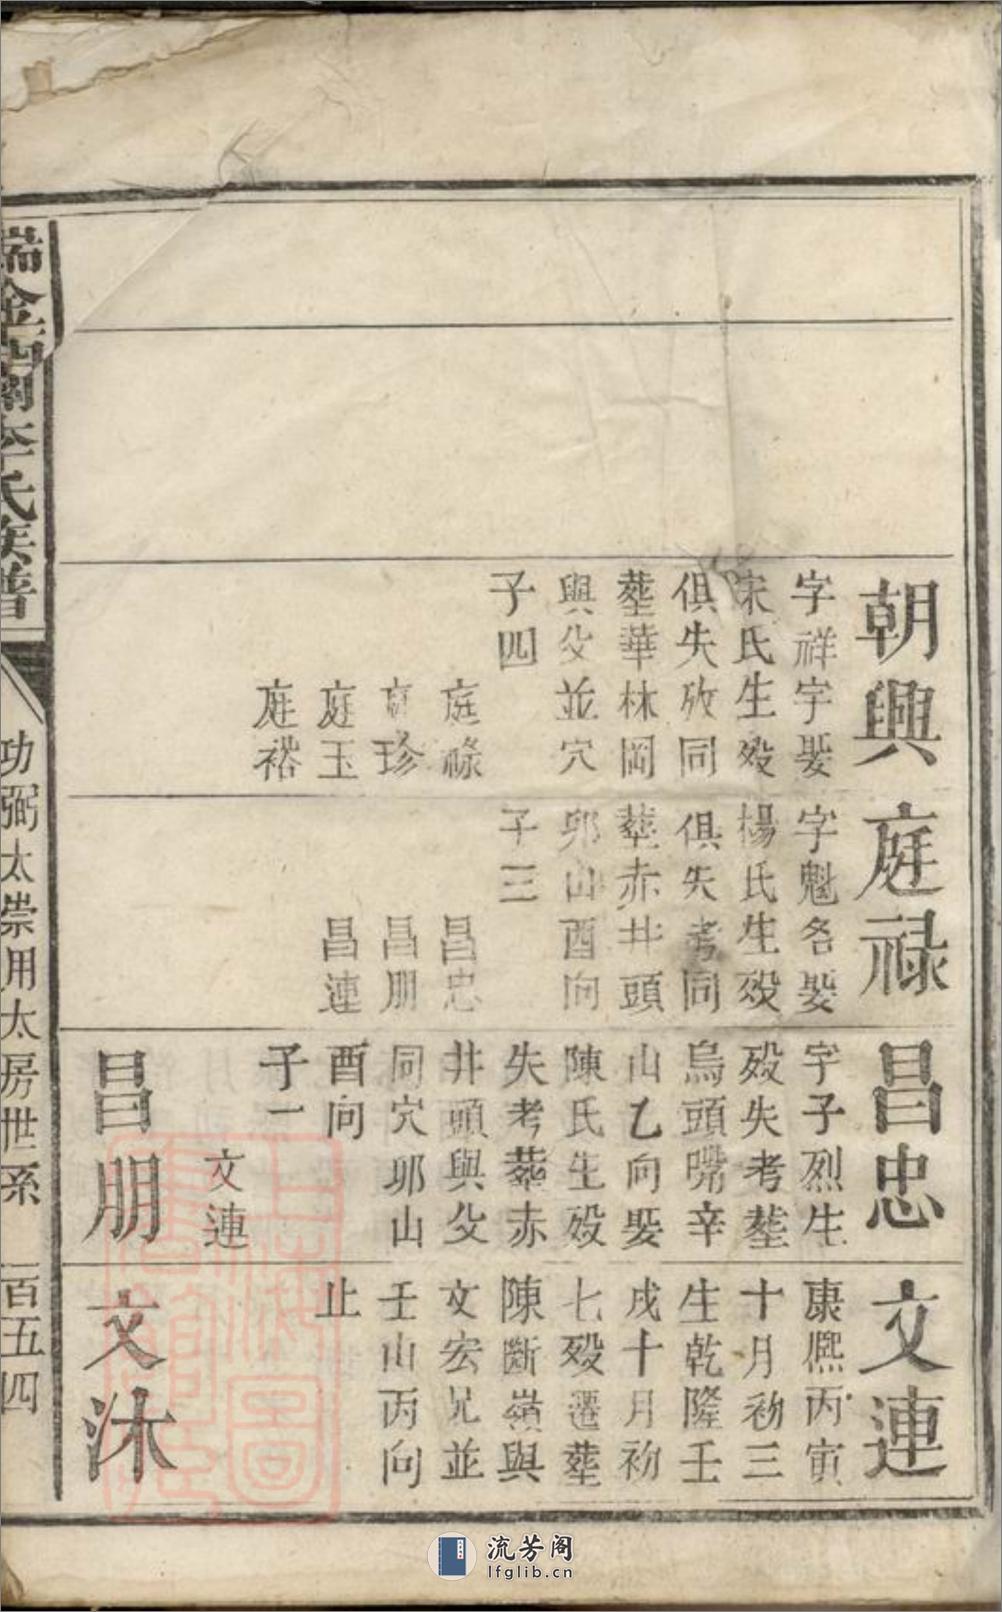 朝興
字祥宇娶
宋氏生殁
俱失攷同
塟華林岡
與父並穴
子四
庭祿
庭珍
庭玉
庭裕
庭禄
字魁各娶
楊氏生殁
俱失考同
塟赤井頭
卯山酉向
子三
昌忠
昌朋
昌連
昌忠
字子烈生
殁失考塟
烏頭嘴辛
山乙向娶
陳氏生殁
失考塟赤
井頭與父
同穴卯山
酉向
子一
文連
昌朋
文連
康熈丙寅
十月初三
生乾隆壬
戌十月初
七殁遷塟
陳斷嶺與
文宏兄並
壬山丙向
止
文沐
瑞金西關李氏族譜
功弼太崇用太房世系
一百五四
上海圖書館藏
流芳阁
lfglib.cn